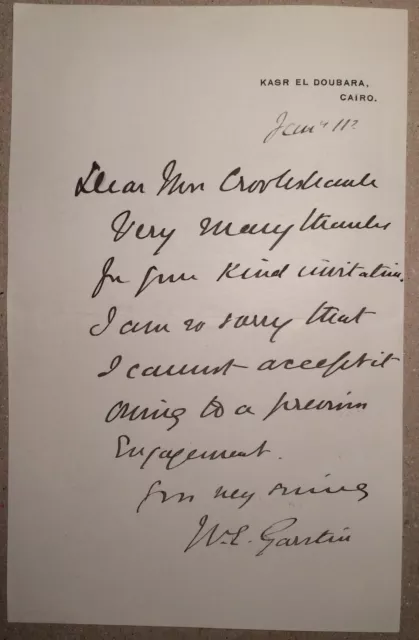 KASR EL DOUBARA,
CAIRO.
Jany 11?
Dear Mrs Crookshank
Very many thanks
for your kind invitation.
I am so sorry that
I cannot accept it
owing to a previous
Engagement.
Yrs very sincerely
W.E. Garstin